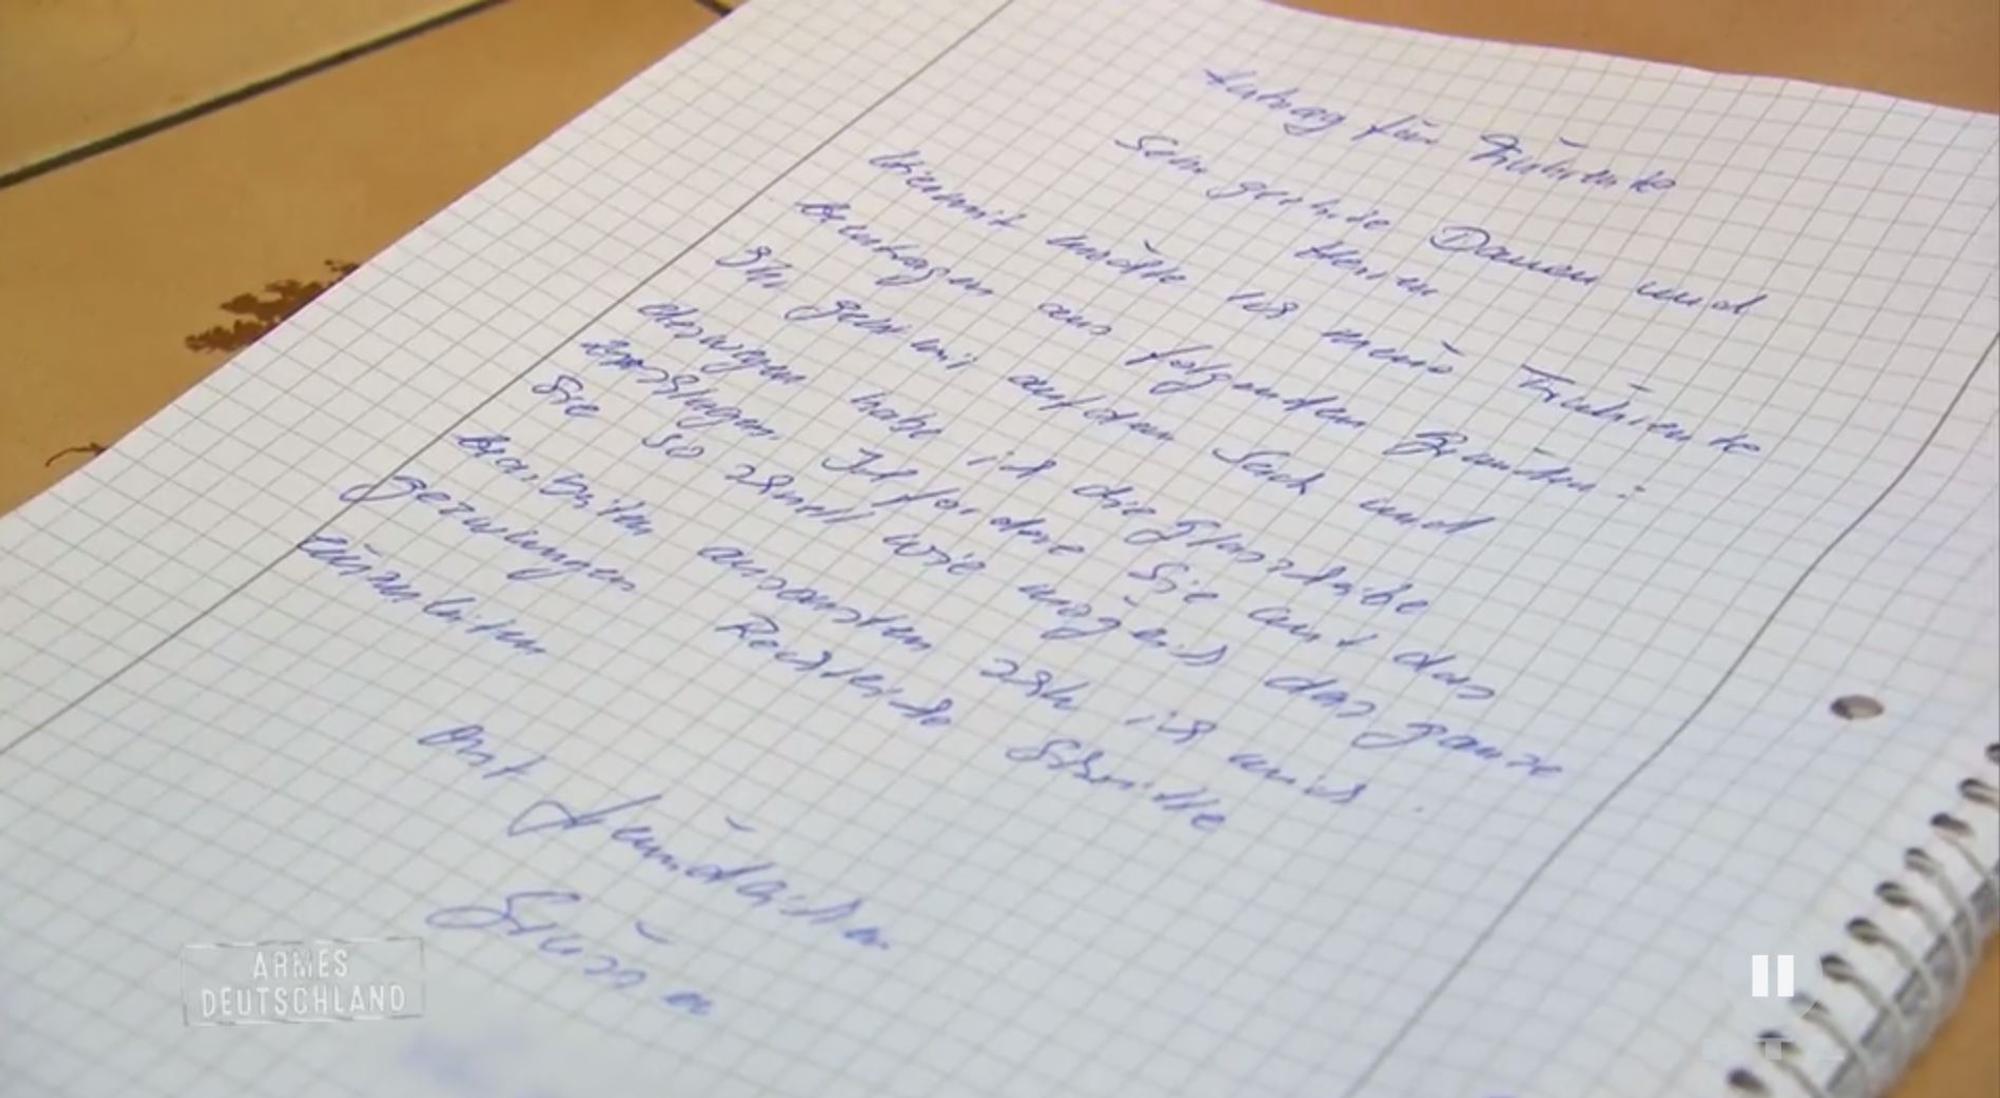 Antrag für Frührente
Sehr geehrte Damen und
Herren
Hiermit möchte ich meine Frührente
beantragen aus folgenden Gründen:
Ihr geht mir auf den Sack und
deswegen habe ich die glasscheibe
Ich fordere Sie auf das
Sie so schnell wie möglich das ganze
bearbeiten ansonsten seh ich mich
gezwungen Rechtliche Schritte
einzuleiten
Mit freundlichen
Grüßen
ARMES
DEUTSCHLAND